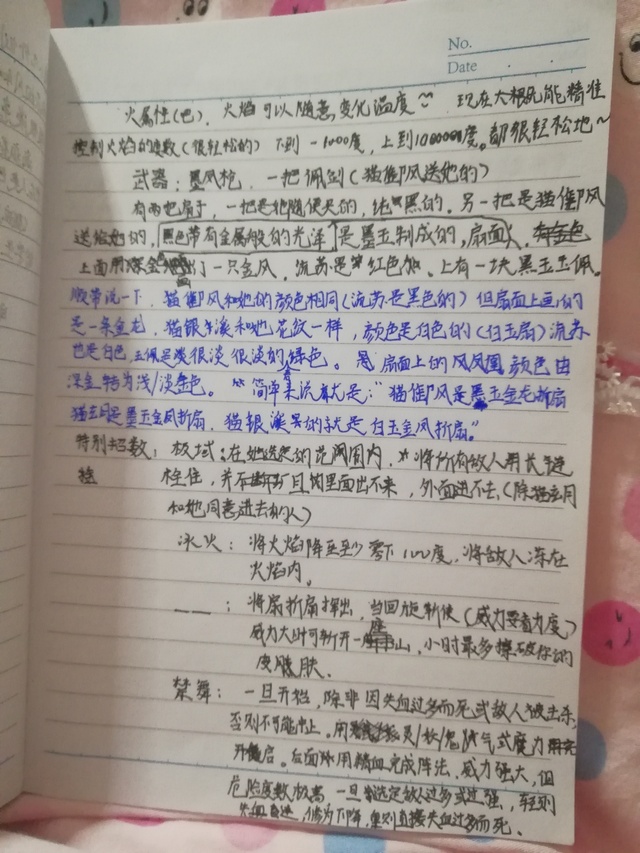 No.
Date
火属性(巴),火焰可以随意变化温度 现在大概只能精准
控制火焰的度数(很轻松的)下到-1000度,上到1000000度。都很轻松地~
武器:墨风枪,一把佩剑(猫御风送她的)
有两把扇子,一把是她随便买的,纯黑的。另一把是猫御风
送给她的,黑色带有金属般的光泽是墨玉制成的,扇面
上面用深金 出了一只金凤。流苏是红色的。上有一块黑玉玉佩。
顺带说一下,猫御风和她的颜色相同(流苏是黑色的)但扇面上画的
是一条金龙,猫银溪和她花纹一样,颜色是白色的(白玉扇)流苏
也是白色,玉佩是很淡很淡的绿色。扇面上的凤凰颜色由
深金转为浅/淡金色。简单来说就是:“猫御风是墨玉金龙折扇
猫 月是墨玉金凤折扇,猫银溪 的就是白玉金凤折扇。”
特别招数:极域:在她选定的范围内,将所有敌人用长
拴住,并在 旦 里面出不来,外面进不去。(除猫 月
和她同意进去的人)
冰火:将火焰降至到零下100度,将敌人冻在
火焰内。
——:将扇折扇挥出,当回旋 使(威力要看力度)
威力大时可斩开一座山,小时最多擦破你的
皮肤。
禁舞:一旦开启,除非因失血过多而死或敌人被击杀,
否则不可能中止。用 灵/妖/鬼 气或魔力
开启。后面 用精血完成阵法,威力强大,但
危险度数极高 一旦 选定敌人过多或过强,轻则
失血 ,修为下降,重则直接失血过多而死。